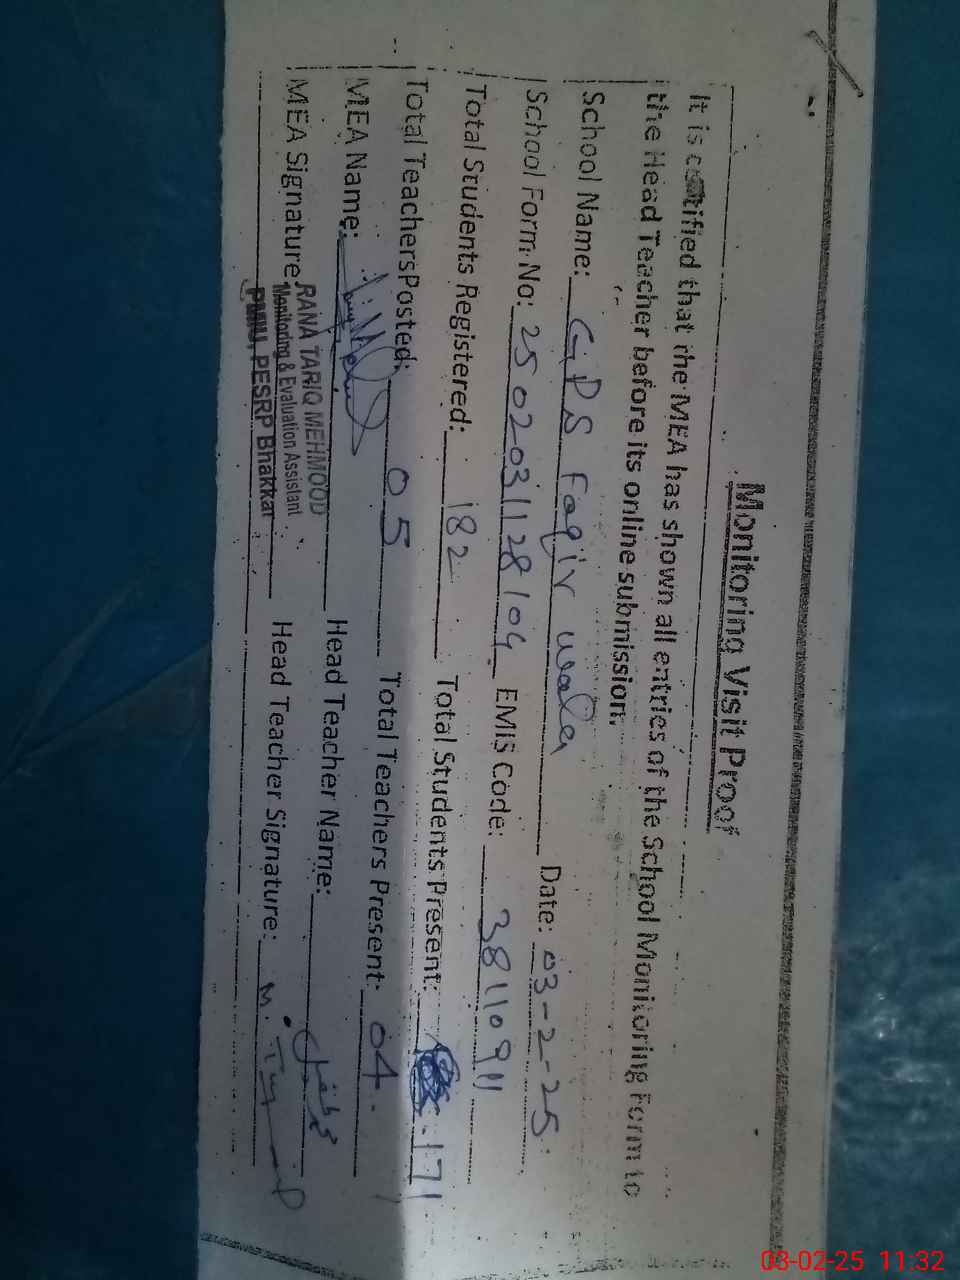 Monitoring Visit Proof
It is certified that the MEA has shown all entries of the School Monitoring Form to
the Head Teacher before its online submission.
School Name: GPS Faqir wala Date: 03-2-25.
School Form No: 2502031128104 EMIS Code: 38110911
Total Students Registered: 182 Total Students Present: 171
Total Teachers Posted: 05 Total Teachers Present: 04
MEA Name: Head Teacher Name: محمد طفیل
MEA Signature: Head Teacher Signature: M.
RANA TARIQ MEHMOOD
Monitoring & Evaluation Assistant
PMIU, PESRP Bhakkar
03-02-25 11:32